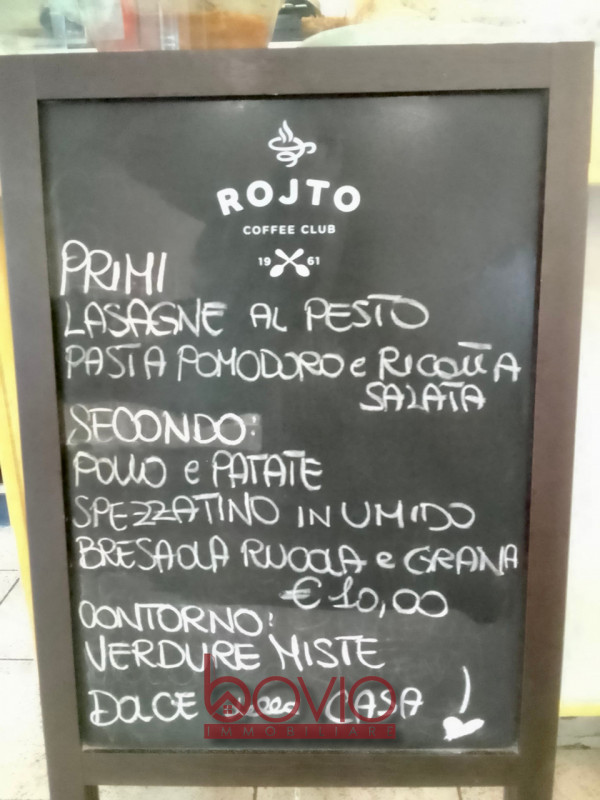 ROJTO
COFFEE CLUB
19 61
PRIMI
LASAGNE AL PESTO
PASTA POMODORO e RICOTTA
SALATA
SECONDO:
POLLO e PATATE
SPEZZATINO IN UMIDO
BRESAOLA RUCOLA e GRANA
€ 10,00
CONTORNO:
VERDURE MISTE
DOLCE CASA !
bovio
IMMOBILIARE